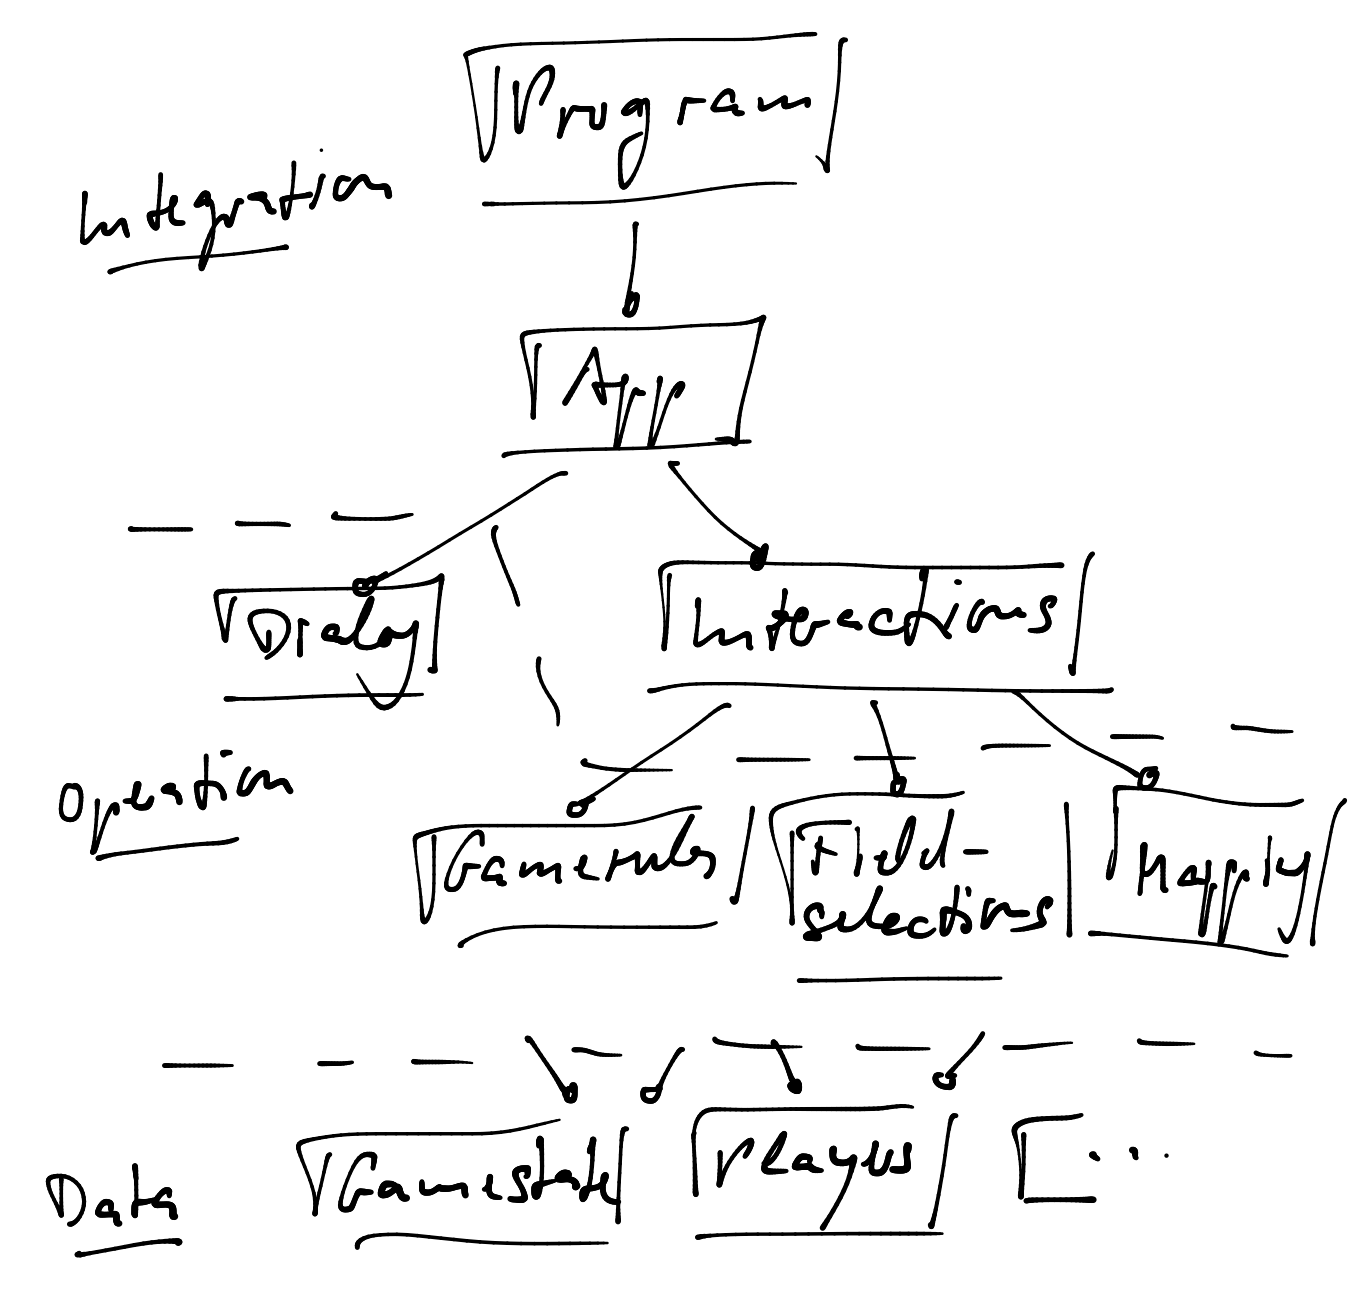 Program
Integration
App
Dialog
Interactions
Operation
Gamerules
Field-
selections
Mapply
Data
Gamestate
Players
...